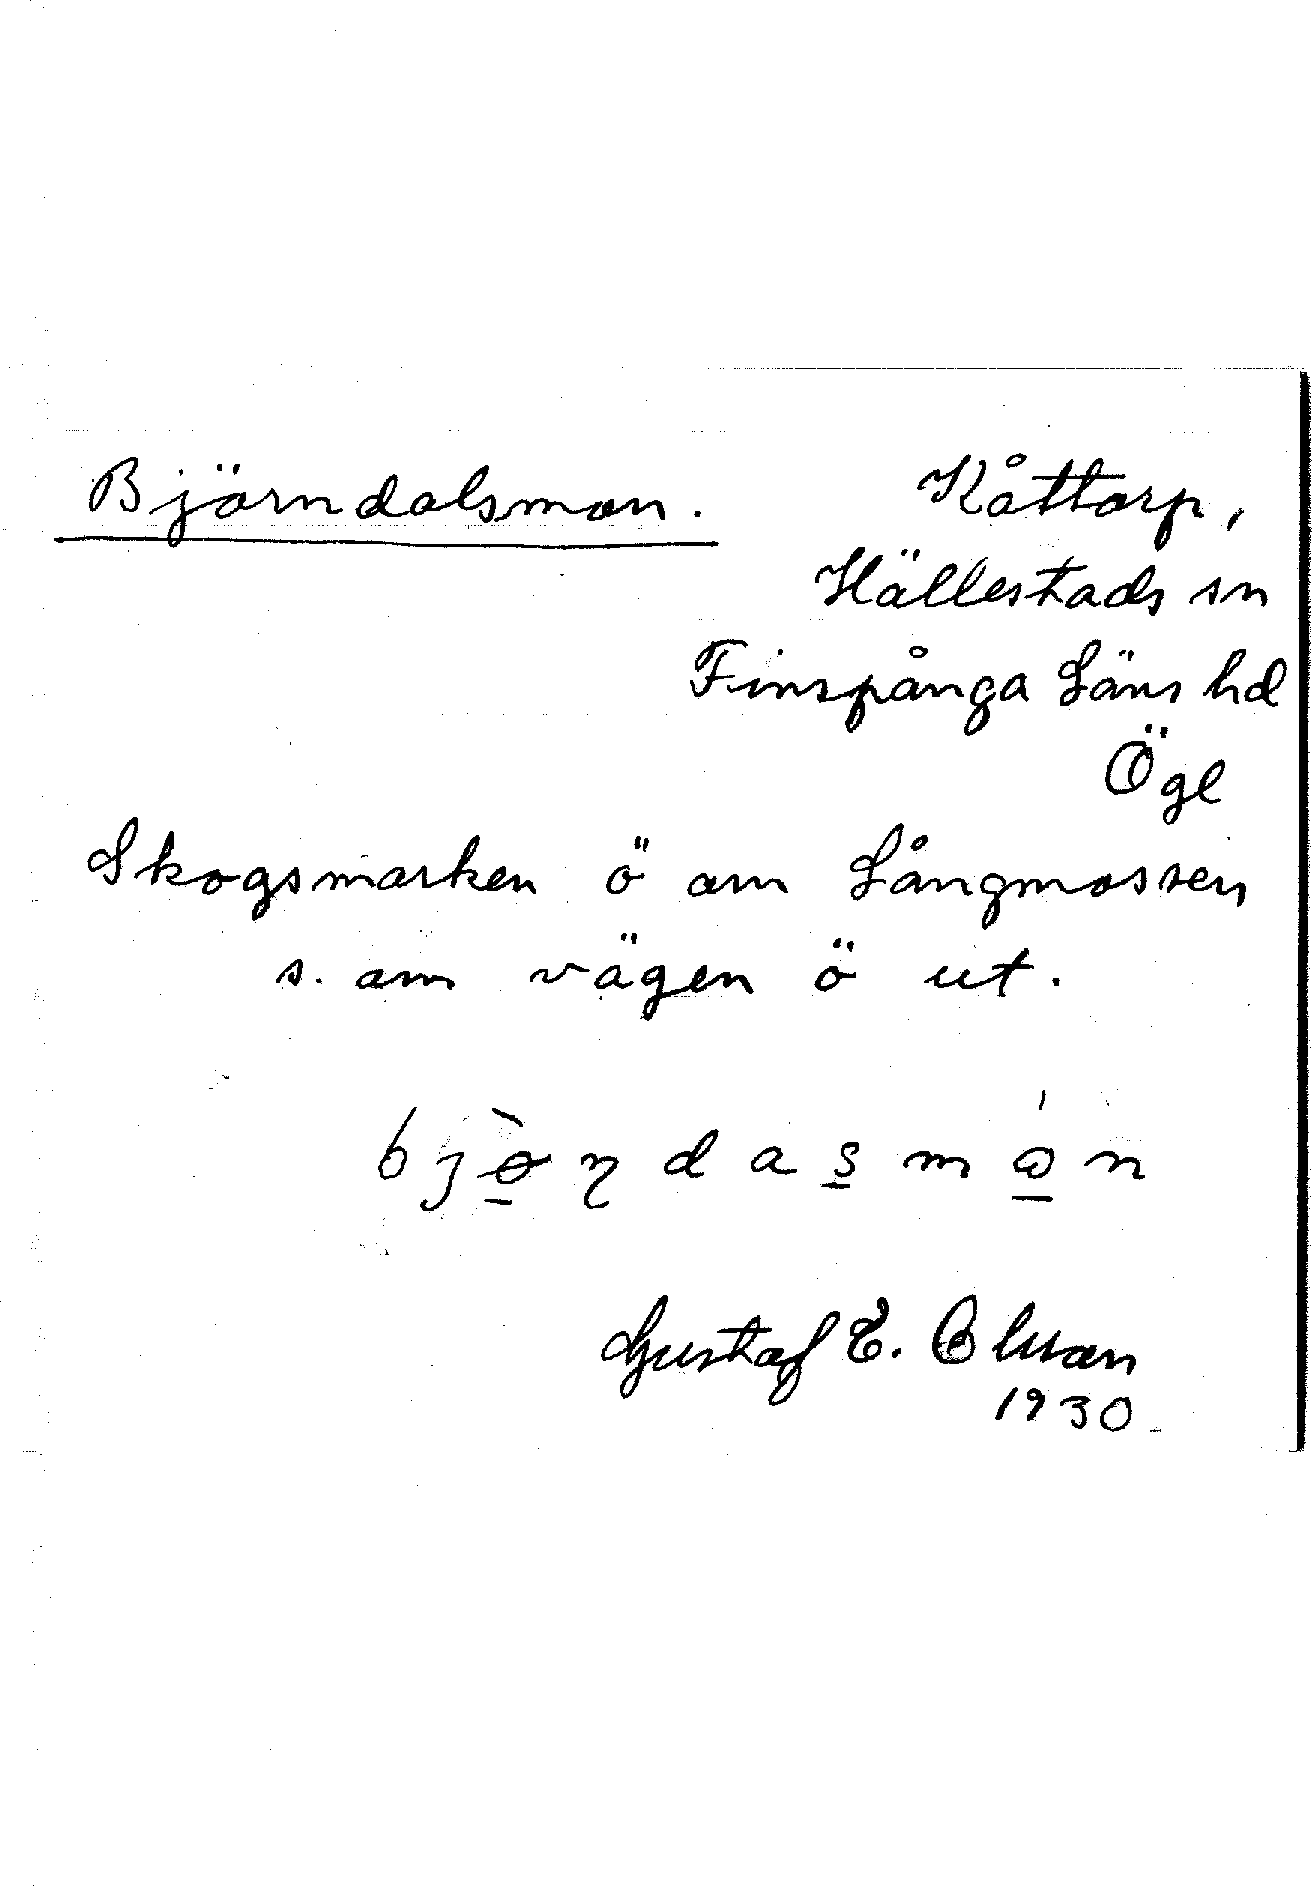 Björndalsmon.
Kåttorp,
Hällestads sn
Finspånga Läns hd
Ögl
Skogsmarken ö om Långmossen
s. om vägen ö ut.
Gustaf E. Olson
1930